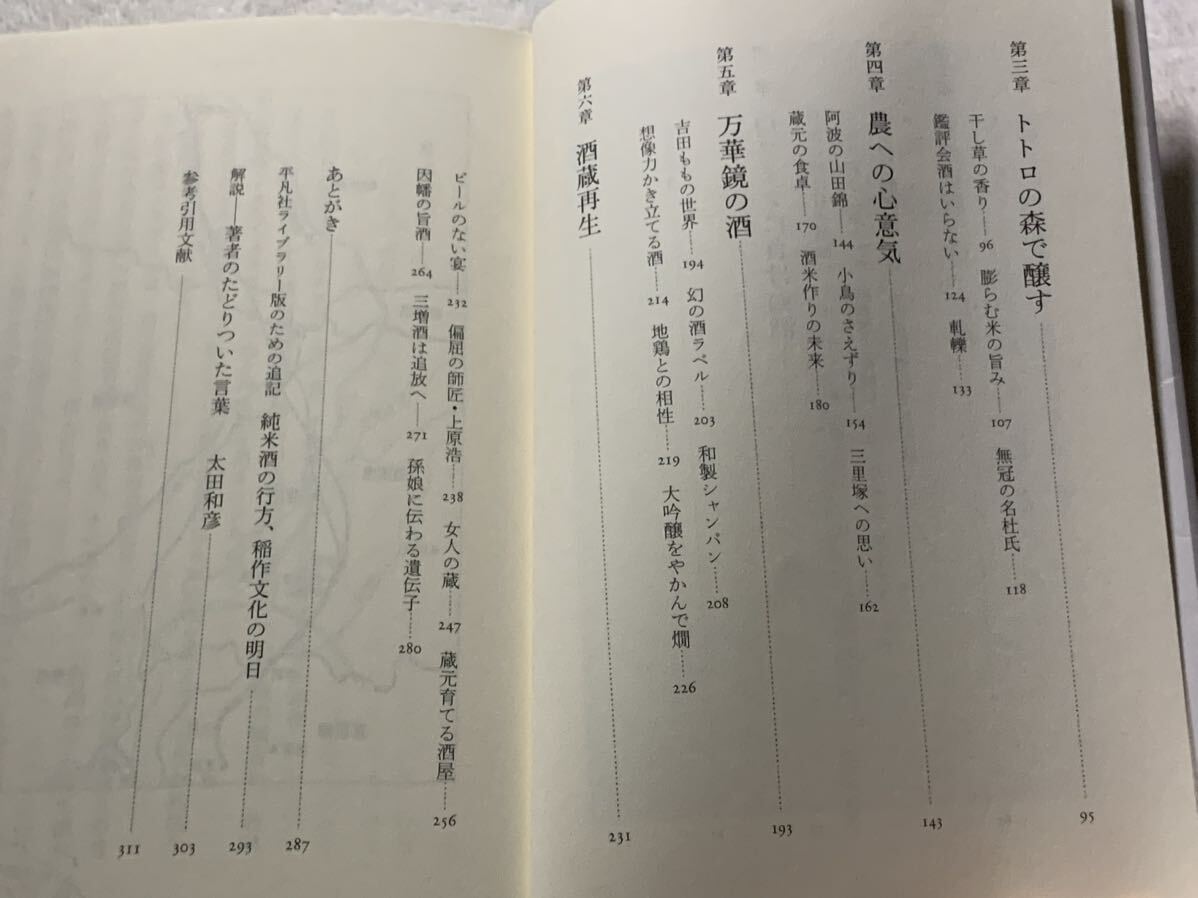 第三章 トトロの森で醸す 95
干し草の香り 96 膨らむ米の旨み 107 無冠の名杜氏 118
鑑評会酒はいらない 124 軋轢 133
第四章 農への心意気 143
阿波の山田錦 144 小鳥のさえずり 154 三里塚への思い 162
蔵元の食卓 170 酒米作りの未来 180
第五章 万華鏡の酒 193
吉田ももの世界 194 幻の酒ラベル 203 和製シャンパン 208
想像力かき立てる酒 214 地鶏との相性 219 大吟醸をやかんで燗 226
第六章 酒蔵再生 231
ビールのない宴 232 偏屈の師匠・上原浩 238 女人の蔵 247 蔵元育てる酒屋 256
因幡の旨酒 264 三増酒は追放へ 271 孫娘に伝わる遺伝子 280
あとがき 287
平凡社ライブラリー版のための追記 純米酒の行方、稲作文化の明日 293
解説──著者のたどりついた言葉 太田和彦 303
参考引用文献 311